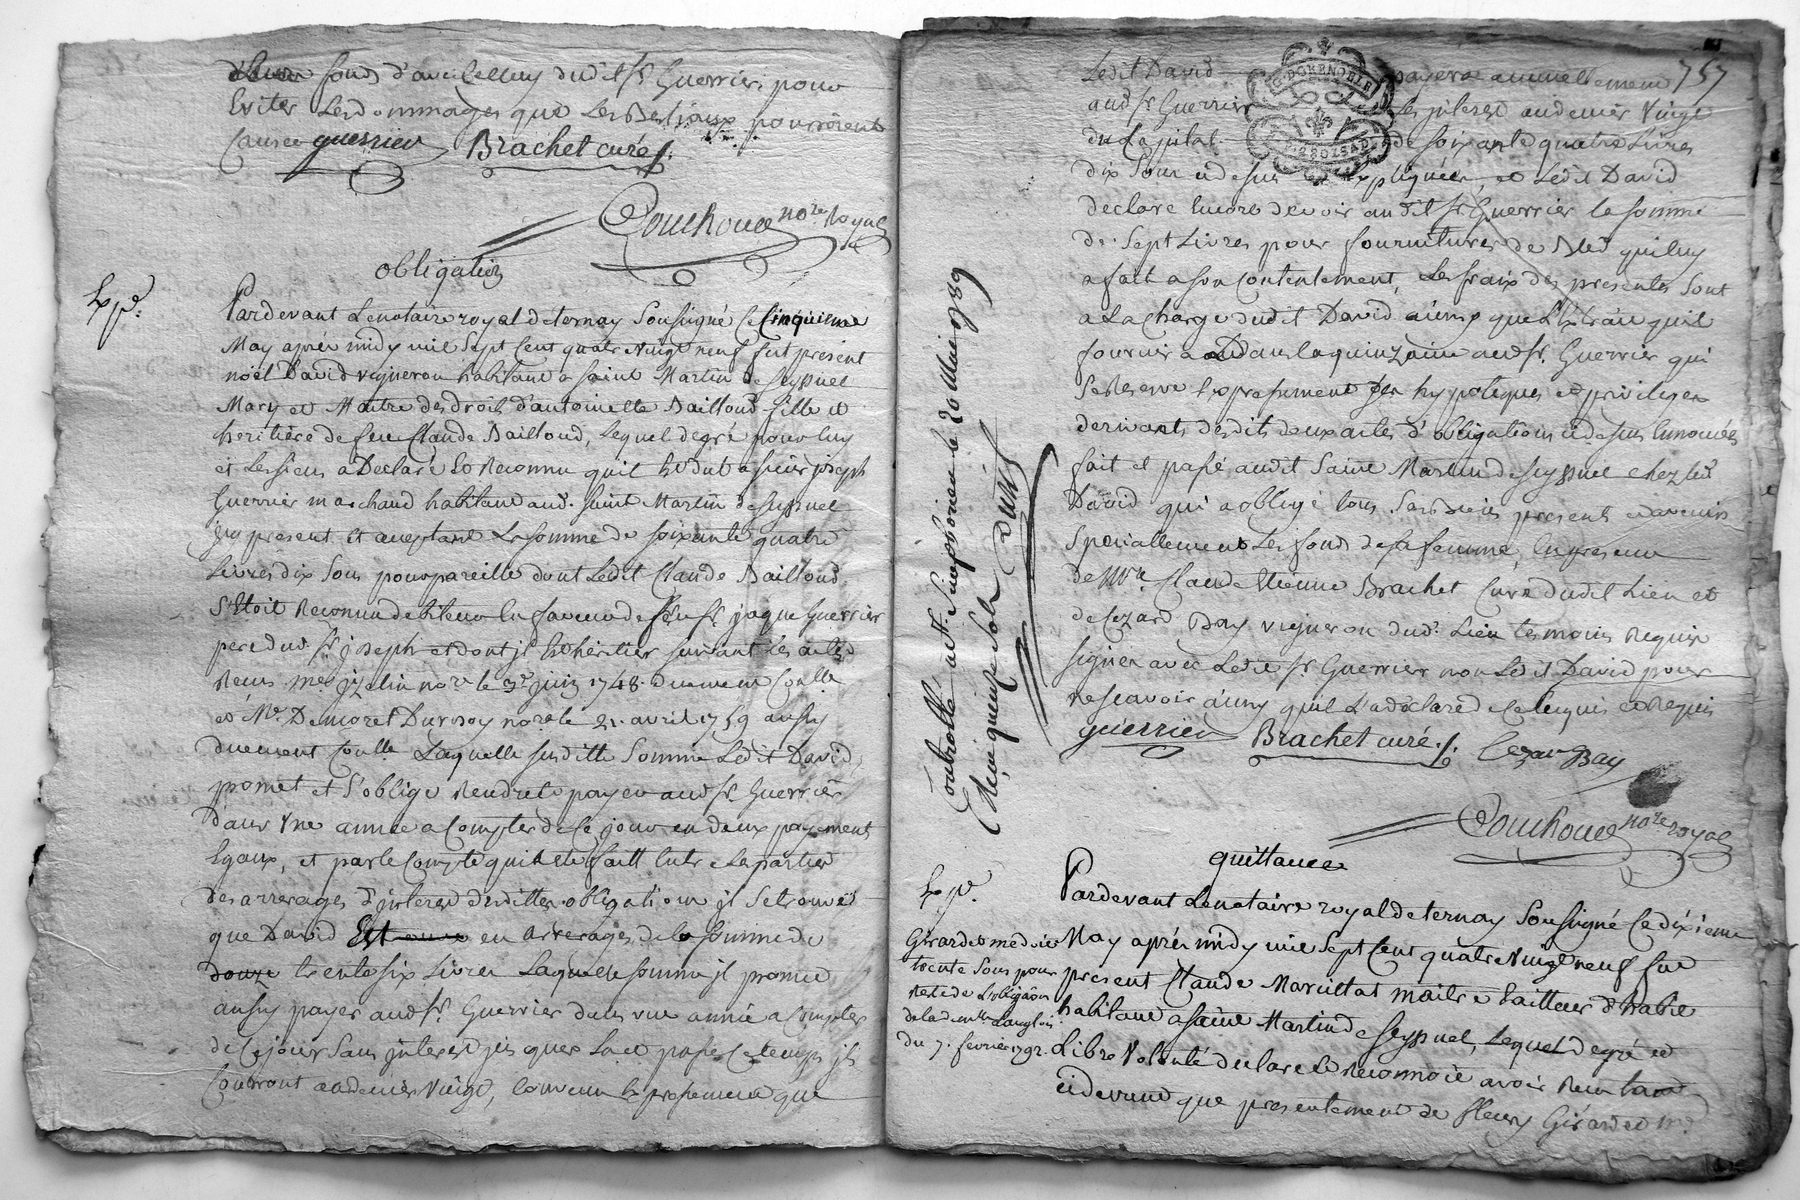 fond d'avec celluy dudit Sr Guerrier, pour
Eviter Les dommages que Les Bestiaux pourroient
Causer guerrier Brachet curé
Couchoud nore royal
obligation
Exp.
Pardevant Lenotaire royal deternay Soussigné Ce Cinquieme
May après midy mil Sept Cent quatre Vingt neuf fut présent
noël David vigneron habitant a saint Martin de seyssuel
Mary et Maitre des droits d'antoinette Baillond fille et
heritière de feu Claude Baillond, Lequel degré pour luy
et Les siens a Declaré Et Reconnu quil Est dut a sieur joseph
Guerrier marchand habitant aud. saint Martin de seyssuel
jcy present et aceptant La somme de soixante quatre
Livres dix sous pour pareille dont Ledit Claude Baillond
S'Etoit Reconnu debiteur En faveur de feu Sr jaque Guerrier
pere dud. Sr joseph et dont jl Est héritier suivant les actes
Recus Me jzelin nore le 3e juin 1748 duement Conllé
et Me Demoret Durozoy nore le 21. avril 1759 aussy
duement Conllé Laquelle susditte Somme Ledit David
promet et S'oblige Rendre et payer aud Sr Guerrier
dans Vne année a Compter de Ce jour en deux payements
Egaux, et par le Compte quil a eté fait Entre Les parties
des arrerages d'jnterest desdittes obligations jl Se trouve
que David Est en arrerages, de la somme de
douze trente six Livres Laquelle somme jl promet
aussy payer aud Sr. Guerrier dans vne année a Compter
de Ce jour Sans jnterest jusques La et passé Ce temps jls
Courront au denier Vingt, Convenu Expressement que
757
Ledit David payera annuellement
aud Sr Guerrier Les jnterest au denier Vingt
du Capital de soixante quatre Livres
dix Sous cidessus Expliquée et Ledit David
declare Encore devoir audit Sr Guerrier la somme
de Sept Livres pour fournitures de Bled quil luy
a fait a son Contentement, Les fraix des presentes Sont
a La Charge dudit David ainsy que L'Extrait quil
fournira dans la quinzaine aud Sr. Guerrier qui
Se Reserve Expressement Les hypoteques et privileges
derivants desdits deux actes d'obligations cidessus Enoncées
fait et passé audit Saint Martin de seyssuel chez led.
David qui a obligé tous Ses Biens presents et avenirs
Specialement Les fond de sa femme, En presence
de Mre Claude Etienne Brachet Curé dudit Lieu et
de Cezard Bay vigneron dud. Lieu temoins Requis
signer avec Ledit Sr Guerrier non Ledit David pour
ne scavoir ainsy quil L'a déclaré de Ce Enquis et Requis
guerrier Brachet curé Cezar Bay
Couchoud nore royal
Controllé a St. Simphorien le 20 Mai 1789
quittance
Exp.
Pardevant Lenotaire royal deternay Soussigné Ce dixieme
May après midy mil Sept Cent quatre Vingt neuf fut
present Claude Marcillat maitre tailleur d'habit
habitant a saint Martin de Seyssuel, Lequel degré et
Libre Volonté declare Et Reconnoit avoir Recu tant
cidevant que presentement de fleury Girardet md
Girardet me doit
trente Sous pour
Reste de L'obligaon
de la demlle Langlois
du 7. fevrier 1792.